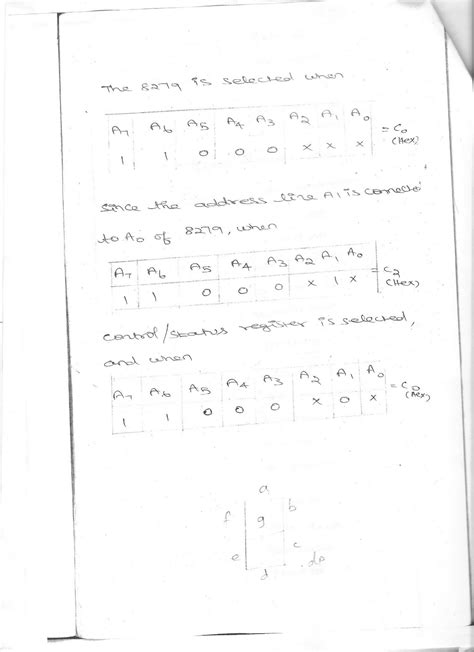 The 8279 is selected when
A7 A6 A5 A4 A3 A2 A1 A0
1 1 0 0 0 x x x = C0 (Hex)
since the address line A1 is connecte
to A0 of 8279, when
A7 A6 A5 A4 A3 A2 A1 A0
1 1 0 0 0 x 1 x = C2 (Hex)
control/status register is selected,
and when
A7 A6 A5 A4 A3 A2 A1 A0
1 1 0 0 0 x 0 x = C0 (Hex)
a
f g b
e c
d dp